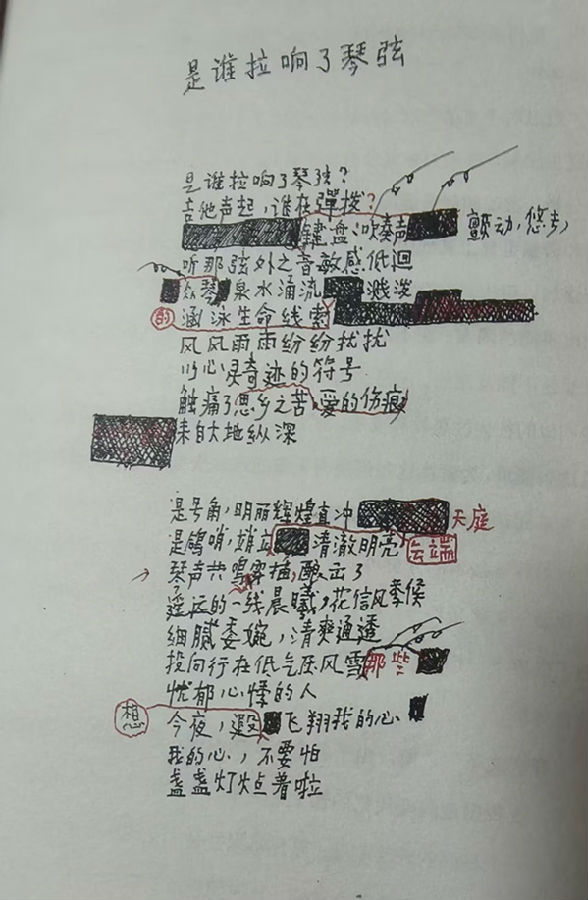 是谁拉响了琴弦
是谁拉响了琴弦?
吉他声起,谁在弹拨?
键盘、吹奏声 颤动,悠扬,
听那弦外之音敏感低迴
众琴 泉水涌流 溅泼
的 涵泳生命线索
风风雨雨纷纷扰扰
以心灵奇迹的符号
触痛了思乡之苦,爱的伤痕
来自大地纵深
是号角,明丽辉煌直冲 天庭
是鸽哨,站 清澈明亮 云端
琴声共鸣 穿插,酿出了
遥远的一线晨曦,花信风季候
细腻委婉,清爽通透
投向行在低气压风雪 那些
忧郁心情的人
想
今夜, 飞翔我的心
我的心,不要怕
盏盏灯火点着啦